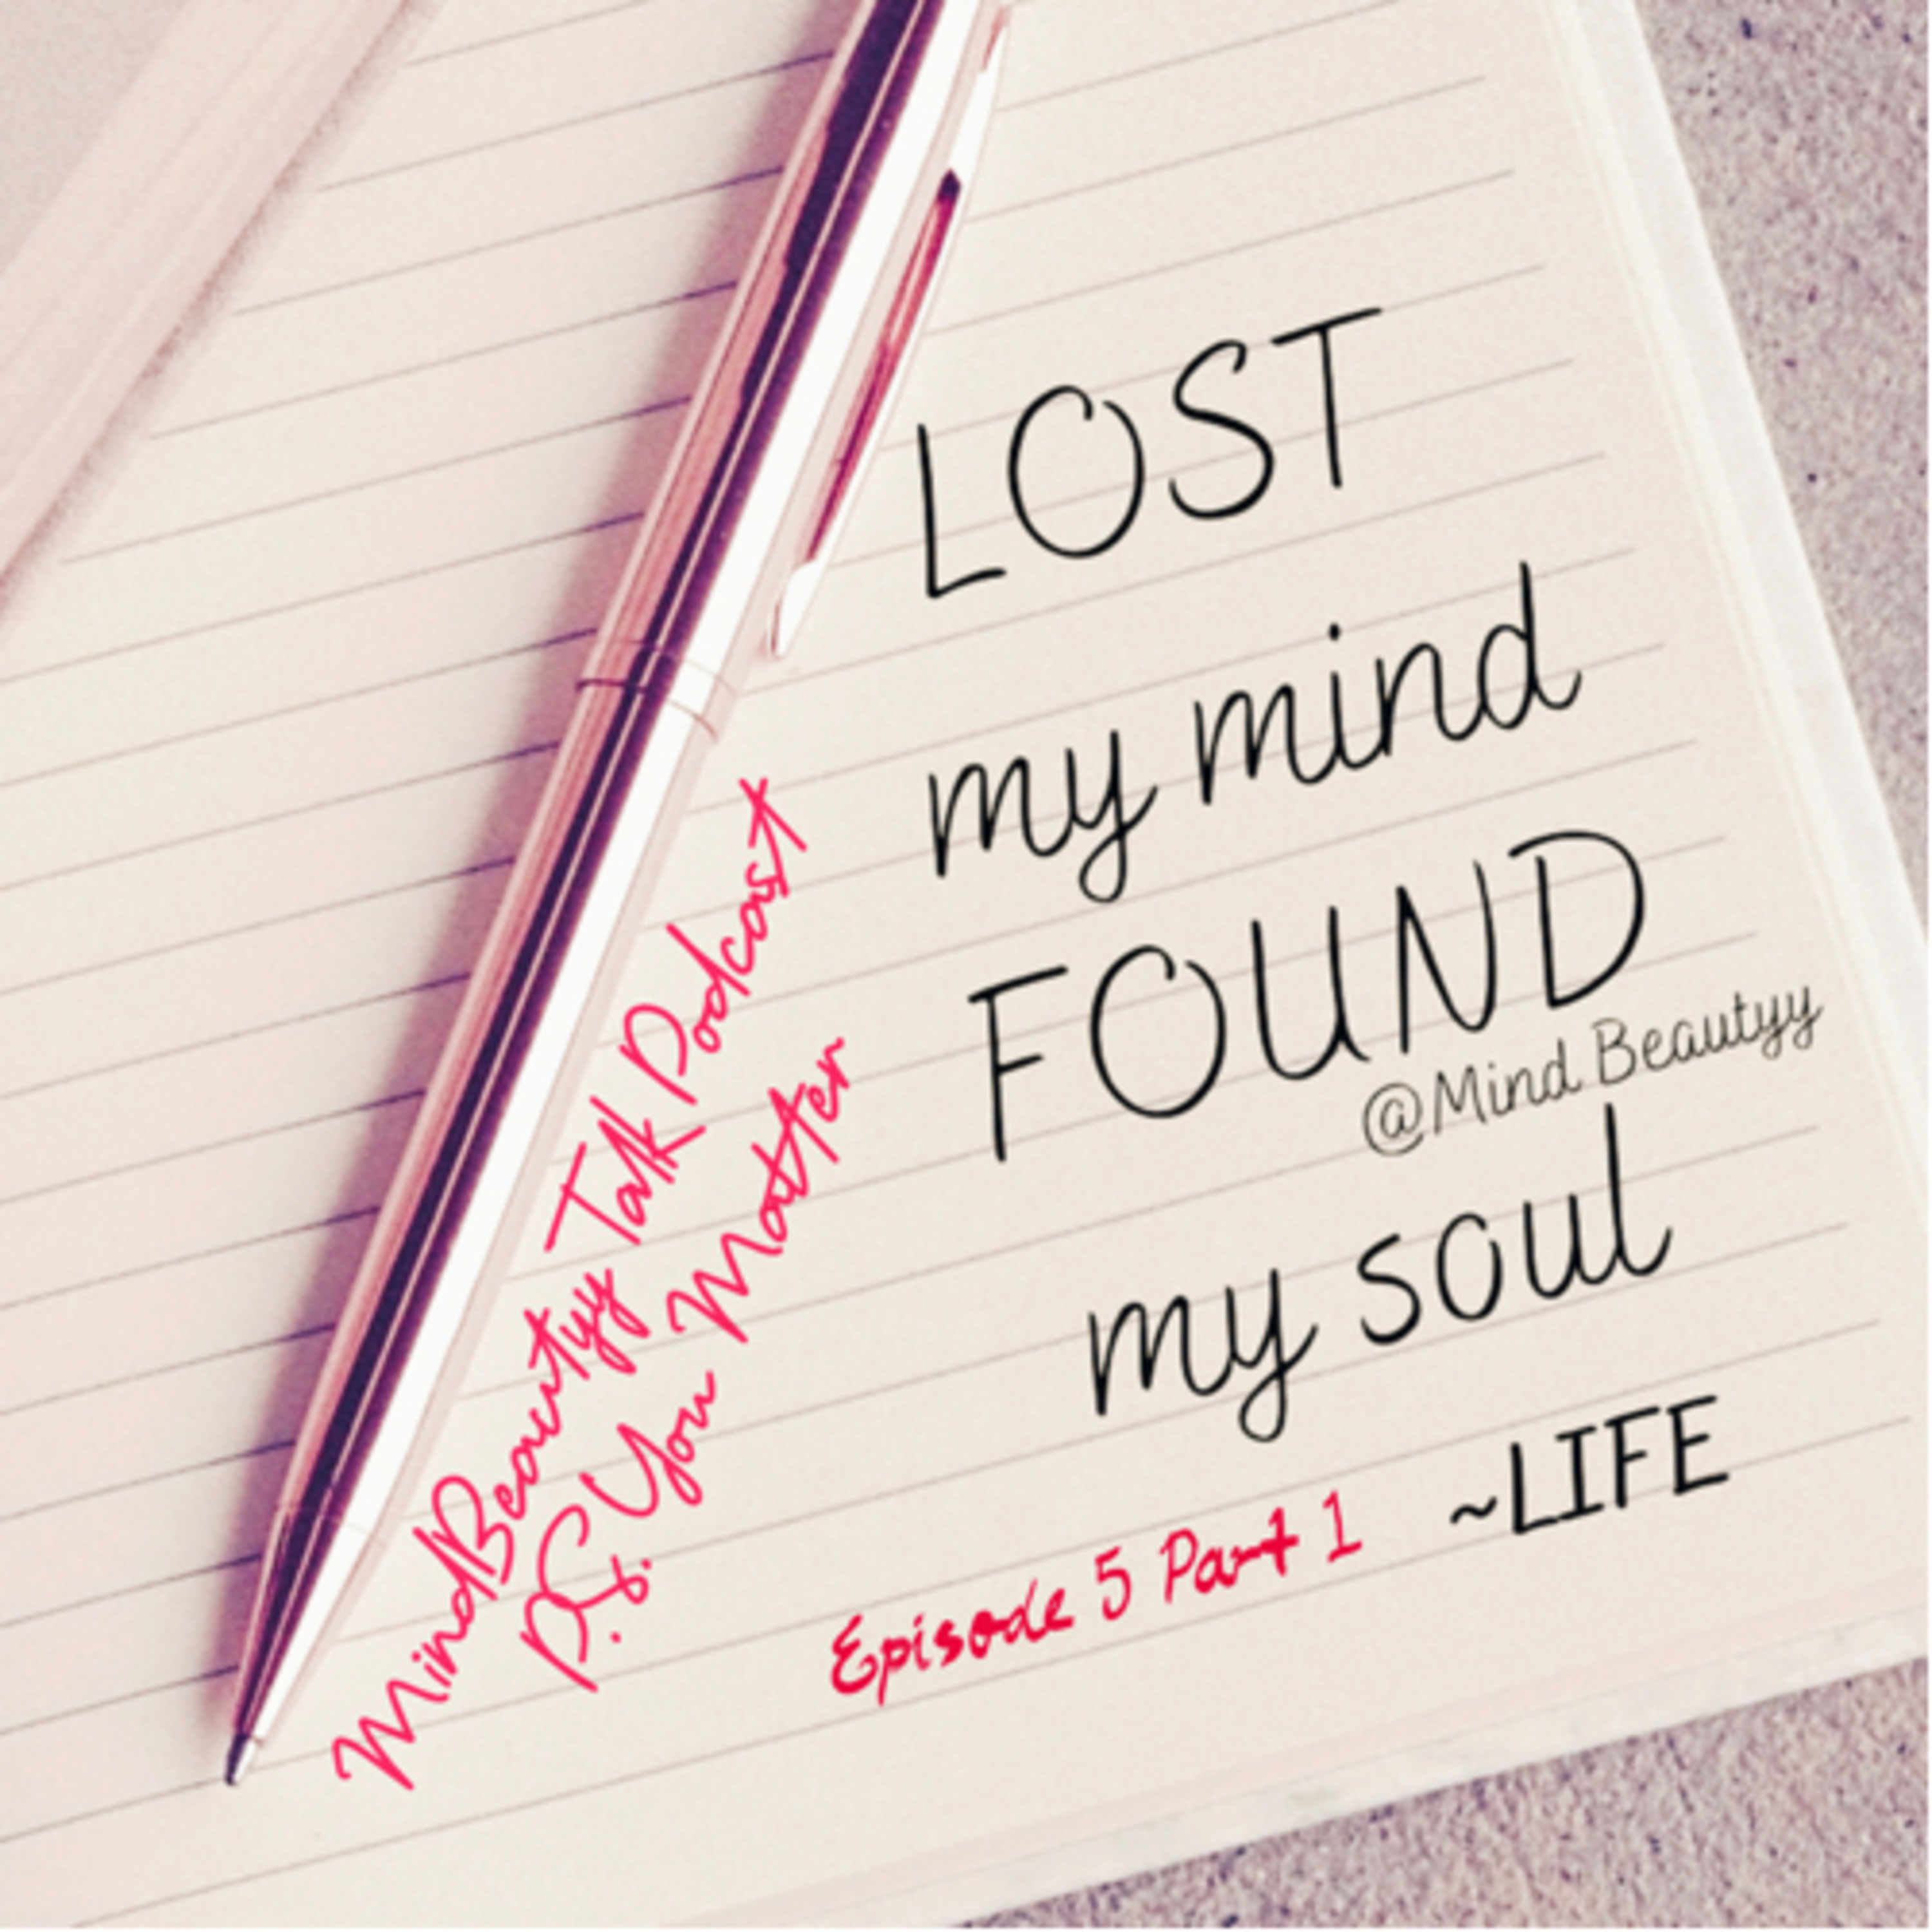 LOST
my mind
FOUND
@Mind Beautyy
my soul
~LIFE
MindBeautyy Talk Podcast
P.S. You Matter
Episode 5 Part 1